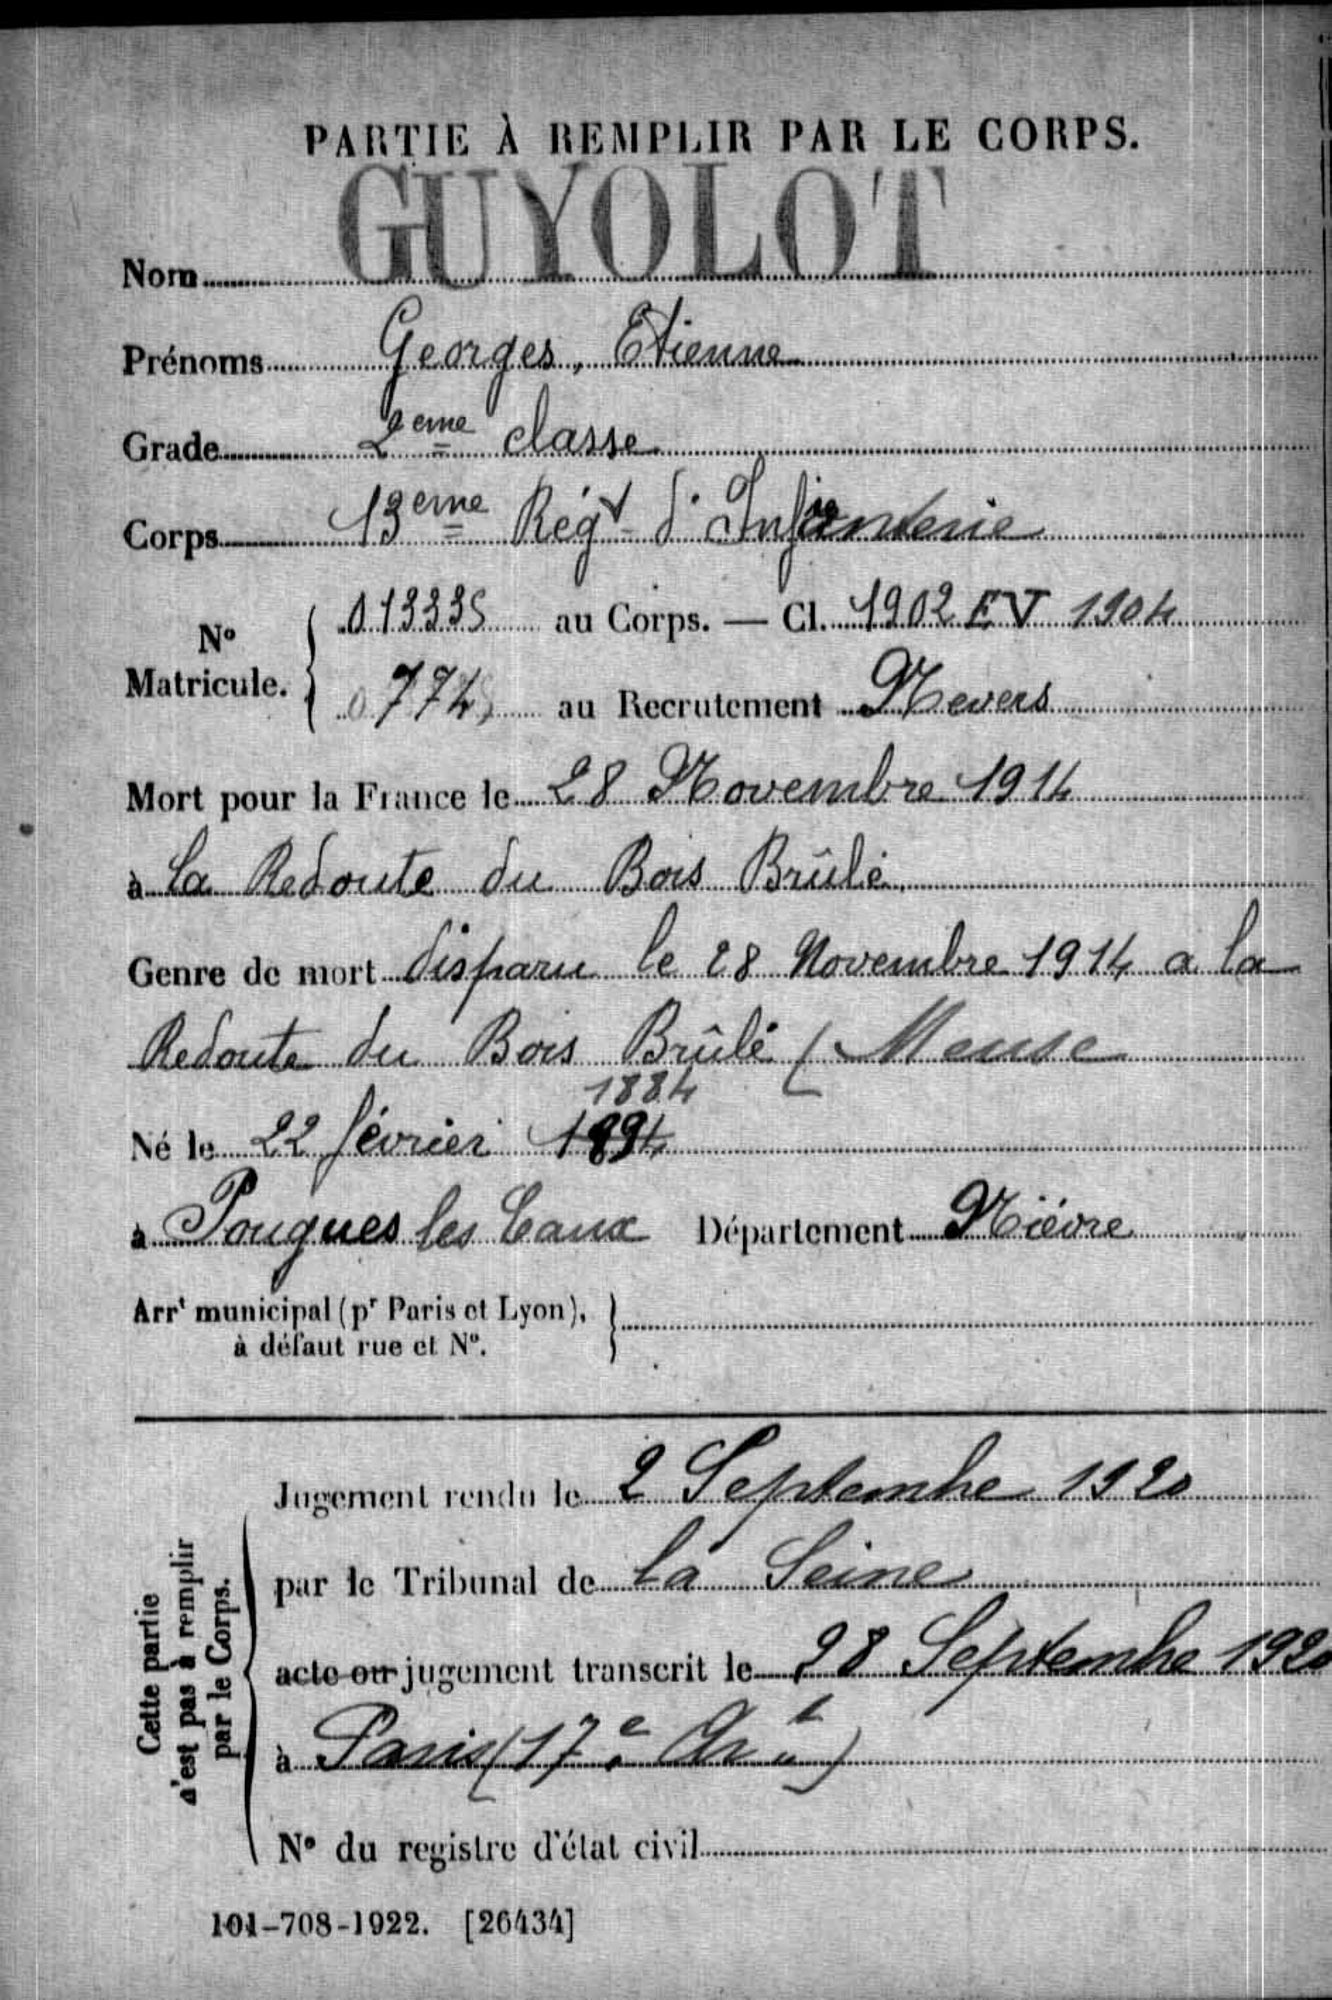 PARTIE À REMPLIR PAR LE CORPS.
Nom GUYOLOT
Prénoms Georges, Etienne
Grade 2eme classe
Corps 13eme Régt d'Infanterie
No Matricule. 013335 au Corps. — Cl. 1902 EV 1904
774 au Recrutement Nevers
Mort pour la France le 28 Novembre 1914
à la Redoute du Bois Brûlé
Genre de mort disparu le 28 Novembre 1914 a la
Redoute du Bois Brûlé (Meuse
1884
Né le 22 février 1894
à Pougues les Eaux Département Nièvre
Arrt municipal (pr Paris et Lyon),
à défaut rue et No.
Jugement rendu le 2 Septembre 1920
par le Tribunal de la Seine
acte ou jugement transcrit le 28 Septembre 1920
à Paris (17e Arrt)
No du registre d'état civil
Cette partie
n'est pas à remplir
par le Corps.
101-708-1922. [26434]